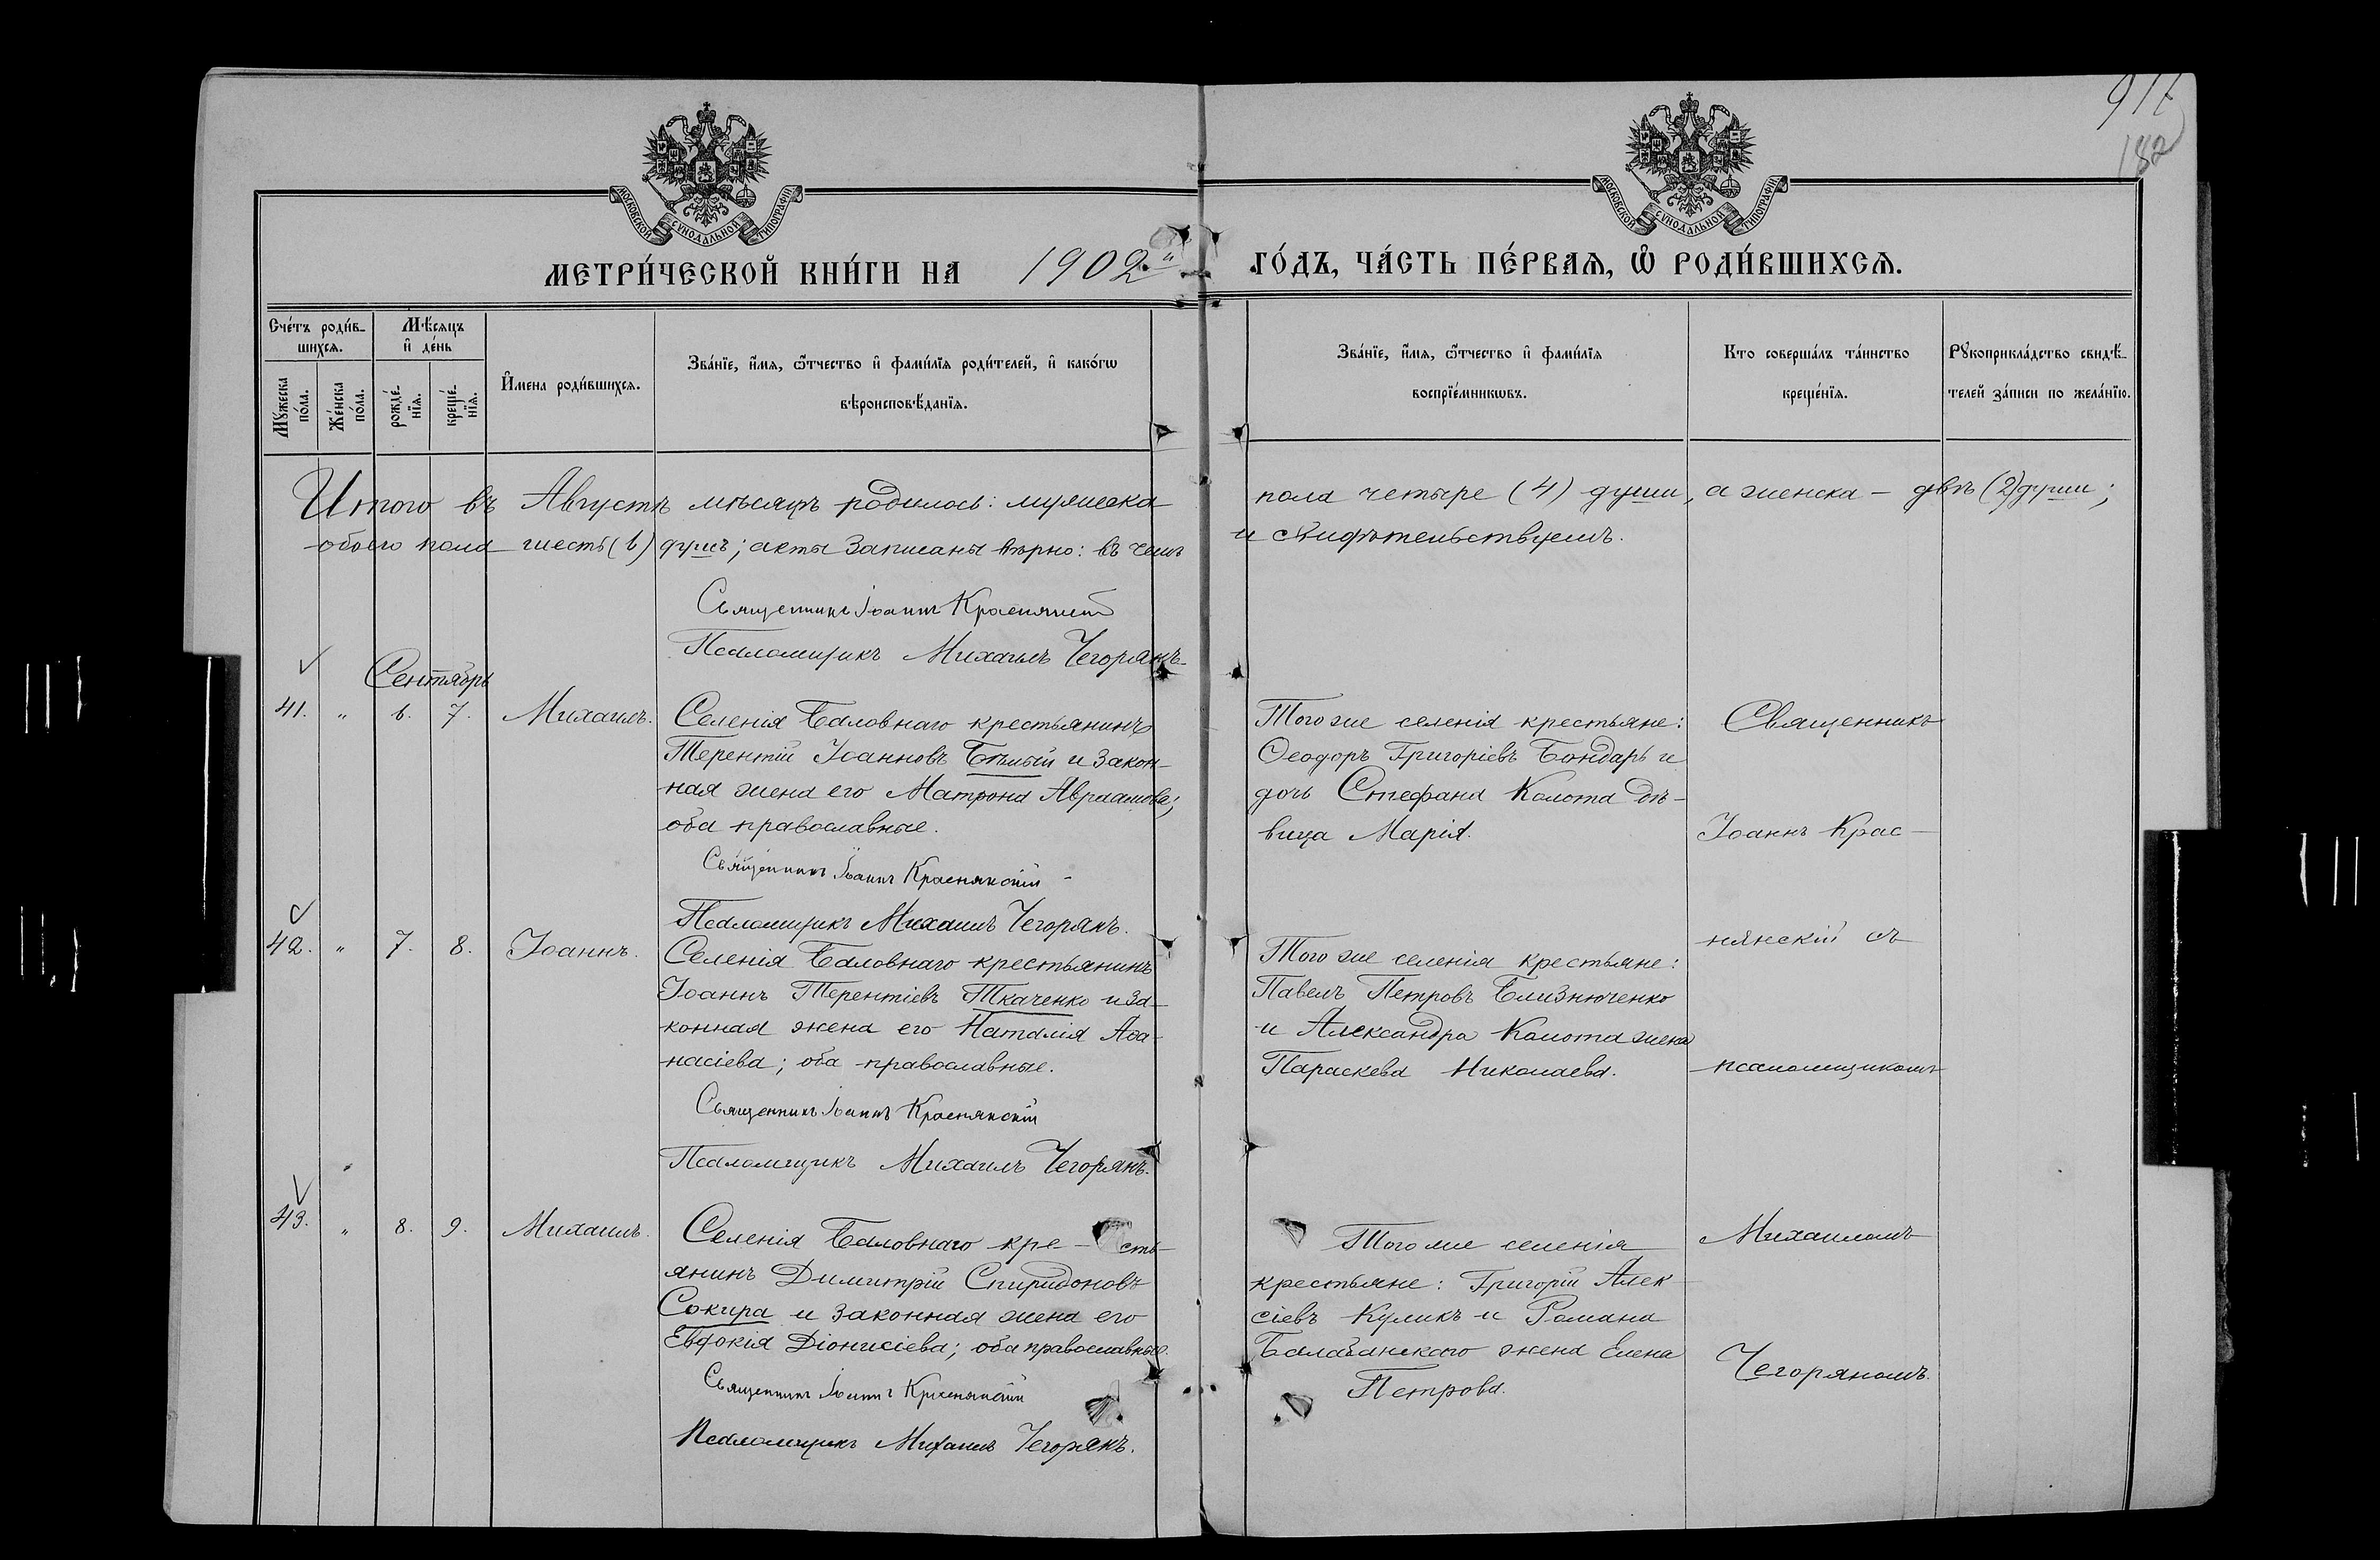 917
182
МОСКОВСКОЙ СУНОДАЛЬНОЙ ТИПОГРАФІИ
МОСКОВСКОЙ СУНОДАЛЬНОЙ ТИПОГРАФІИ
МЕТРИ́ЧЕСКОЙ КНИ́ГИ НА 1902й ГО́ДЪ, ЧА́СТЬ ПЕ́РВАЯ, Ѡ РОДИ́ВШИХСЯ.
Сче́тъ роди́в-
шихся.
Мꙋ́жеска
по́ла.
Же́нска
по́ла.
Мѣ́сяцъ
и де́нь
рожде́-
нїя.
креще́-
нїя.
И́мена роди́вшихся.
Зва́нїе, и́мя, ѻ́тчество и фами́лїя роди́телей, и како́гѡ
вѣроисповѣ́данїя.
Зва́нїе, и́мя, ѻ́тчество и фами́лїя
воспрїе́мникѡвъ.
Кто соверша́лъ та́инство
креще́нїя.
Рꙋкоприкла́дство свидѣ́-
телей за́писи по жела́нїю.
Итого въ Августѣ мѣсяцѣ родилось: мужеска пола четыре (4) души, а женска - двѣ (2) души;
обоего пола шесть (6) душъ; акты записаны вѣрно: въ чемъ и свидѣтельствуемъ.
Священникъ Іоаннъ Краснянскій
Псаломщикъ Михаилъ Чегорянъ.
Сентябрь
41. " 6. 7. Михаилъ.
Селенія Баловнаго крестьянинъ
Терентій Іоанновъ Бѣлый и закон-
ная жена его Матрона Авраамова;
оба православные.
Священникъ Іоаннъ Краснянскій
Псаломщикъ Михаилъ Чегорянъ.
Того же селенія крестьяне:
Ѳеодоръ Григоріевъ Бондарь и
дочь Стефана Колота дѣ-
вица Марія.
Священникъ
Іоаннъ Крас-
нянскій съ
псаломщикомъ
Михаиломъ
Чегоряномъ.
42. " 7. 8. Іоаннъ.
Селенія Баловнаго крестьянинъ
Іоаннъ Терентіевъ Ткаченко и за-
конная жена его Наталія Аѳа-
насіева; оба православные.
Священникъ Іоаннъ Краснянскій
Псаломщикъ Михаилъ Чегорянъ.
Того же селенія крестьяне:
Павелъ Петровъ Близнюченко
и Александра Колота жена
Параскева Николаева.
43. " 8. 9. Михаилъ.
Селенія Баловнаго кре-сть-
янинъ Димитрій Спиридоновъ
Сокира и законная жена его
Евдокія Діонисіева; оба православные.
Священникъ Іоаннъ Краснянскій
Псаломщикъ Михаилъ Чегорянъ.
Того же селенія
крестьяне: Григорій Алек-
сіевъ Куликъ и Романа
Балабанскаго жена Елена
Петрова.